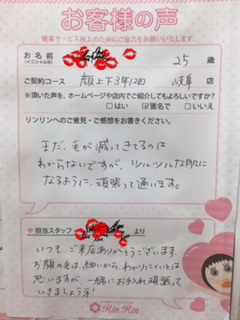 お客様の声
接客サービス向上のためにご協力をお願いいたします。
お名前
(イニシャル可)
25 歳
ご契約コース 顔上下3年12回 岐阜 店
※頂いた声を、ホームページや店内でご紹介してもよろしいですか？
□はい ☑匿名で □いいえ
リンリンへのご意見・ご感想をお書きください。
まだ、毛が減ってきてるのは
わからないですが、ツルツルな肌に
なるように、頑張って通います。
※担当スタッフ
より
いつも ご来店ありがとうございます
お顔の毛は細いから、わかりにくいとは
思いますが 一緒にお手入れ頑張って
いきましょう!!
Rin Rin